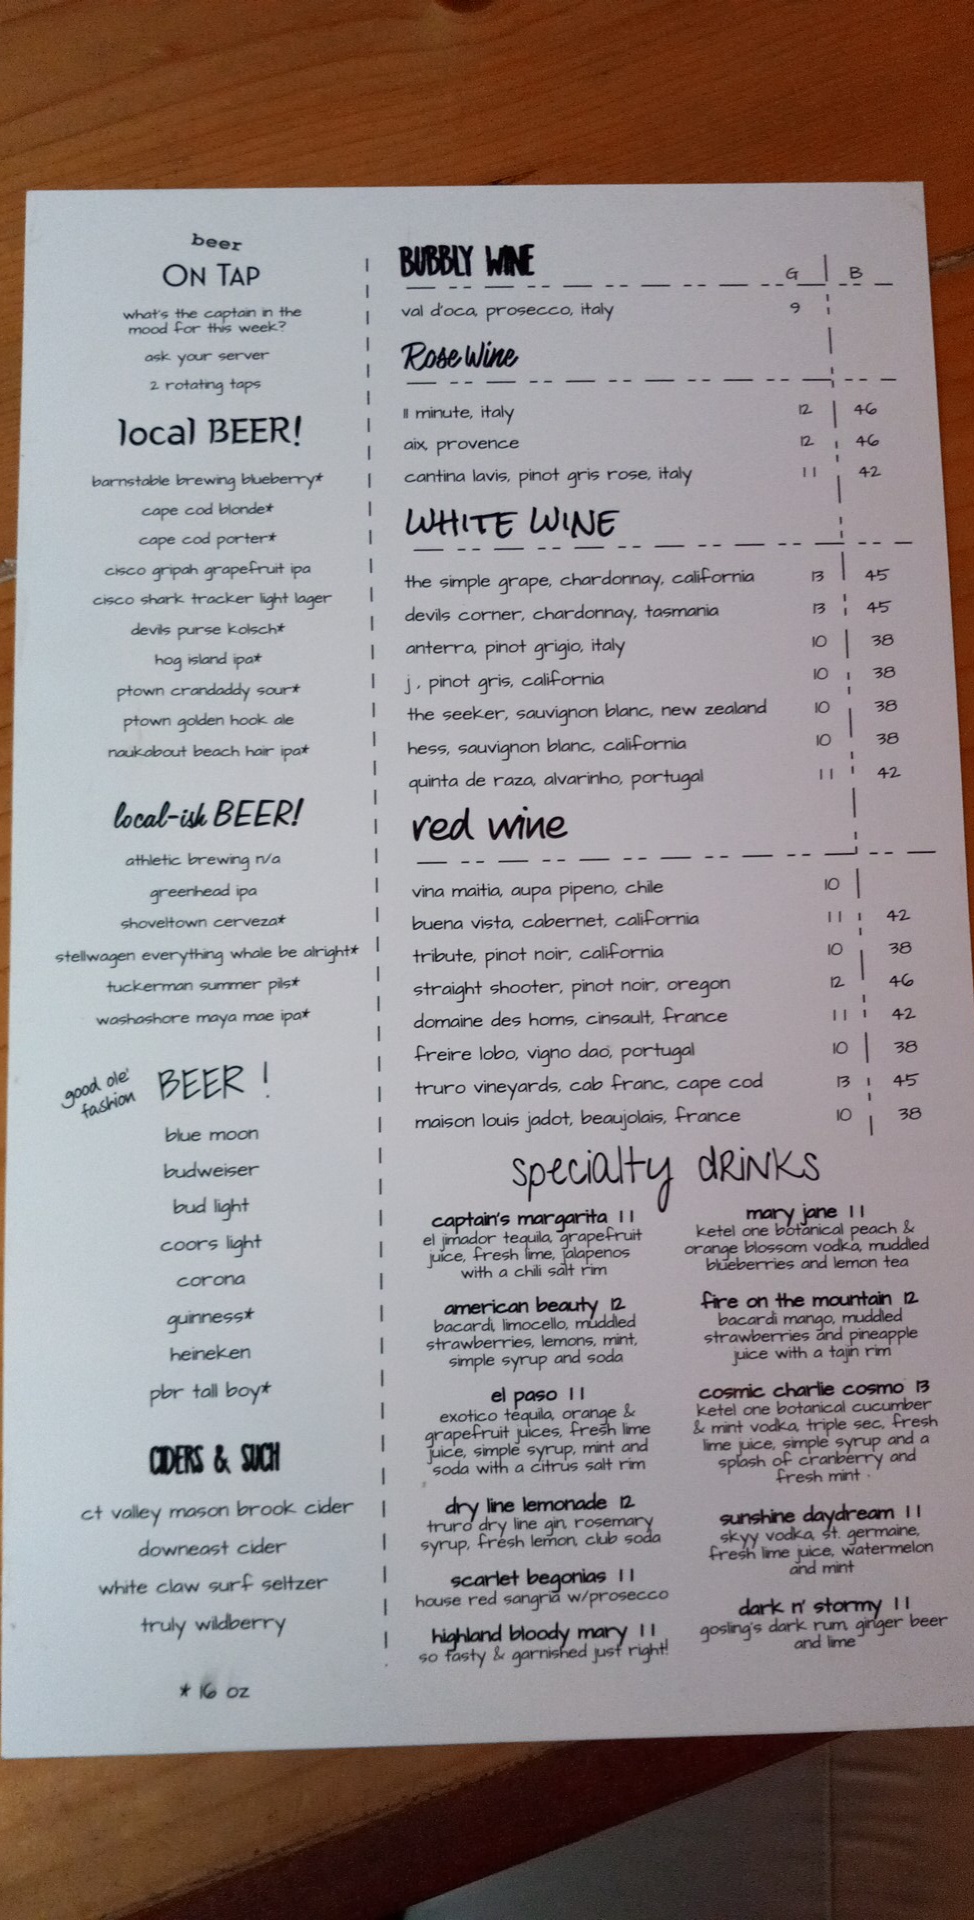 beer
ON TAP
what's the captain in the
mood for this week?
ask your server
2 rotating taps
local BEER!
barnstable brewing blueberry*
cape cod blonde*
cape cod porter*
cisco gripah grapefruit ipa
cisco shark tracker light lager
devils purse kolsch*
hog island ipa*
ptown crandaddy sour*
ptown golden hook ale
naukabout beach hair ipa*
local-ish BEER!
athletic brewing n/a
greenhead ipa
shoveltown cerveza*
stellwagen everything whale be alright*
tuckerman summer pils*
washashore maya mae ipa*
good ole' fashion BEER!
blue moon
budweiser
bud light
coors light
corona
guinness*
heineken
pbr tall boy*
CIDERS & SUCH
ct valley mason brook cider
downeast cider
white claw surf seltzer
truly wildberry
* 16 oz
BUBBLY WINE G B
val d'oca, prosecco, italy 9
Rose Wine
11 minute, italy 12 46
aix, provence 12 46
cantina lavis, pinot gris rose, italy 11 42
WHITE WINE
the simple grape, chardonnay, california 13 45
devils corner, chardonnay, tasmania 13 45
anterra, pinot grigio, italy 10 38
j, pinot gris, california 10 38
the seeker, sauvignon blanc, new zealand 10 38
hess, sauvignon blanc, california 10 38
quinta de raza, alvarinho, portugal 11 42
red wine
vina maitia, aupa pipeno, chile 10
buena vista, cabernet, california 11 42
tribute, pinot noir, california 10 38
straight shooter, pinot noir, oregon 12 46
domaine des homs, cinsault, france 11 42
freire lobo, vigno dao, portugal 10 38
truro vineyards, cab franc, cape cod 13 45
maison louis jadot, beaujolais, france 10 38
specialty dRiNKS
captain's margarita 11
el jimador tequila, grapefruit
juice, fresh lime, jalapenos
with a chili salt rim
american beauty 12
bacardi, limocello, muddled
strawberries, lemons, mint,
simple syrup and soda
el paso 11
exotico tequila, orange &
grapefruit juices, fresh lime
juice, simple syrup, mint and
soda with a citrus salt rim
dry line lemonade 12
truro dry line gin, rosemary
syrup, fresh lemon, club soda
scarlet begonias 11
house red sangria w/prosecco
highland bloody mary 11
so tasty & garnished just right!
mary jane 11
ketel one botanical peach &
orange blossom vodka, muddled
blueberries and lemon tea
fire on the mountain 12
bacardi mango, muddled
strawberries and pineapple
juice with a tajin rim
cosmic charlie cosmo 13
ketel one botanical cucumber
& mint vodka, triple sec, fresh
lime juice, simple syrup and a
splash of cranberry and
fresh mint
sunshine daydream 11
skyy vodka, st. germaine,
fresh lime juice, watermelon
and mint
dark n' stormy 11
gosling's dark rum, ginger beer
and lime